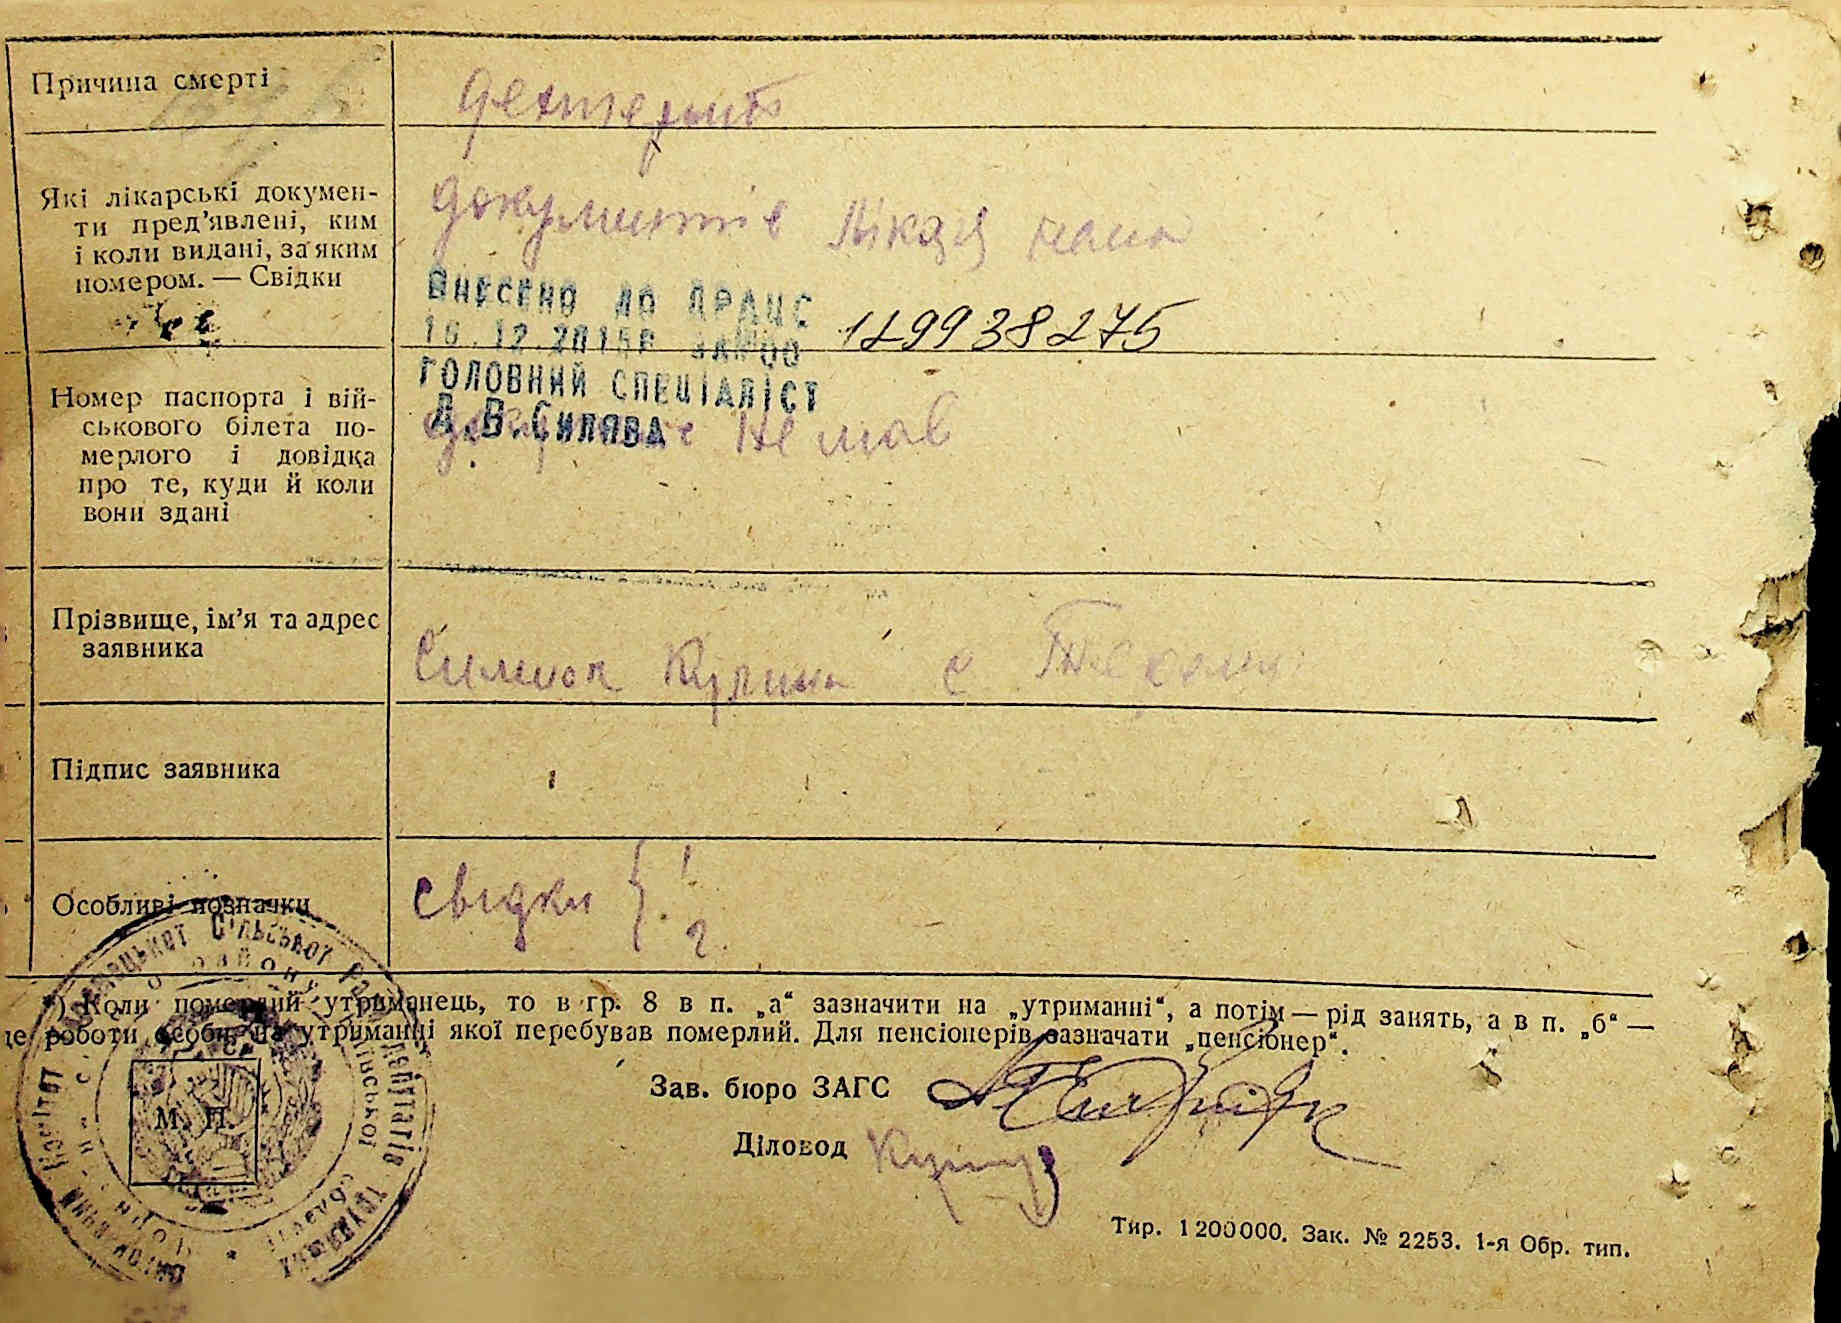 Причина смерті
Які лікарські докумен-
ти пред'явлені, ким
і коли видані, за яким
номером. — Свідки
документів лікаря нема
Внесено до ДРАЦС
129938275
ГОЛОВНИЙ СПЕЦІАЛІСТ
Номер паспорта і вій-
ськового білета по-
мерлого і довідка
про те, куди й коли
вони здані
не мав
Прізвище, ім'я та адрес
заявника
Підпис заявника
Особливі позначки
свідки { 1
2.
*) Коли померлий утриманець, то в гр. 8 в п. „а“ зазначити на „утриманні“, а потім — рід занять, а в п. „б“ —
це роботи особи, на утриманні якої перебував померлий. Для пенсіонерів зазначати „пенсіонер“.
Зав. бюро ЗАГС
М. П.
Діловод
Сільської Ради депутатів трудящих
району
області
Тир. 1200000. Зак. № 2253. 1-я Обр. тип.